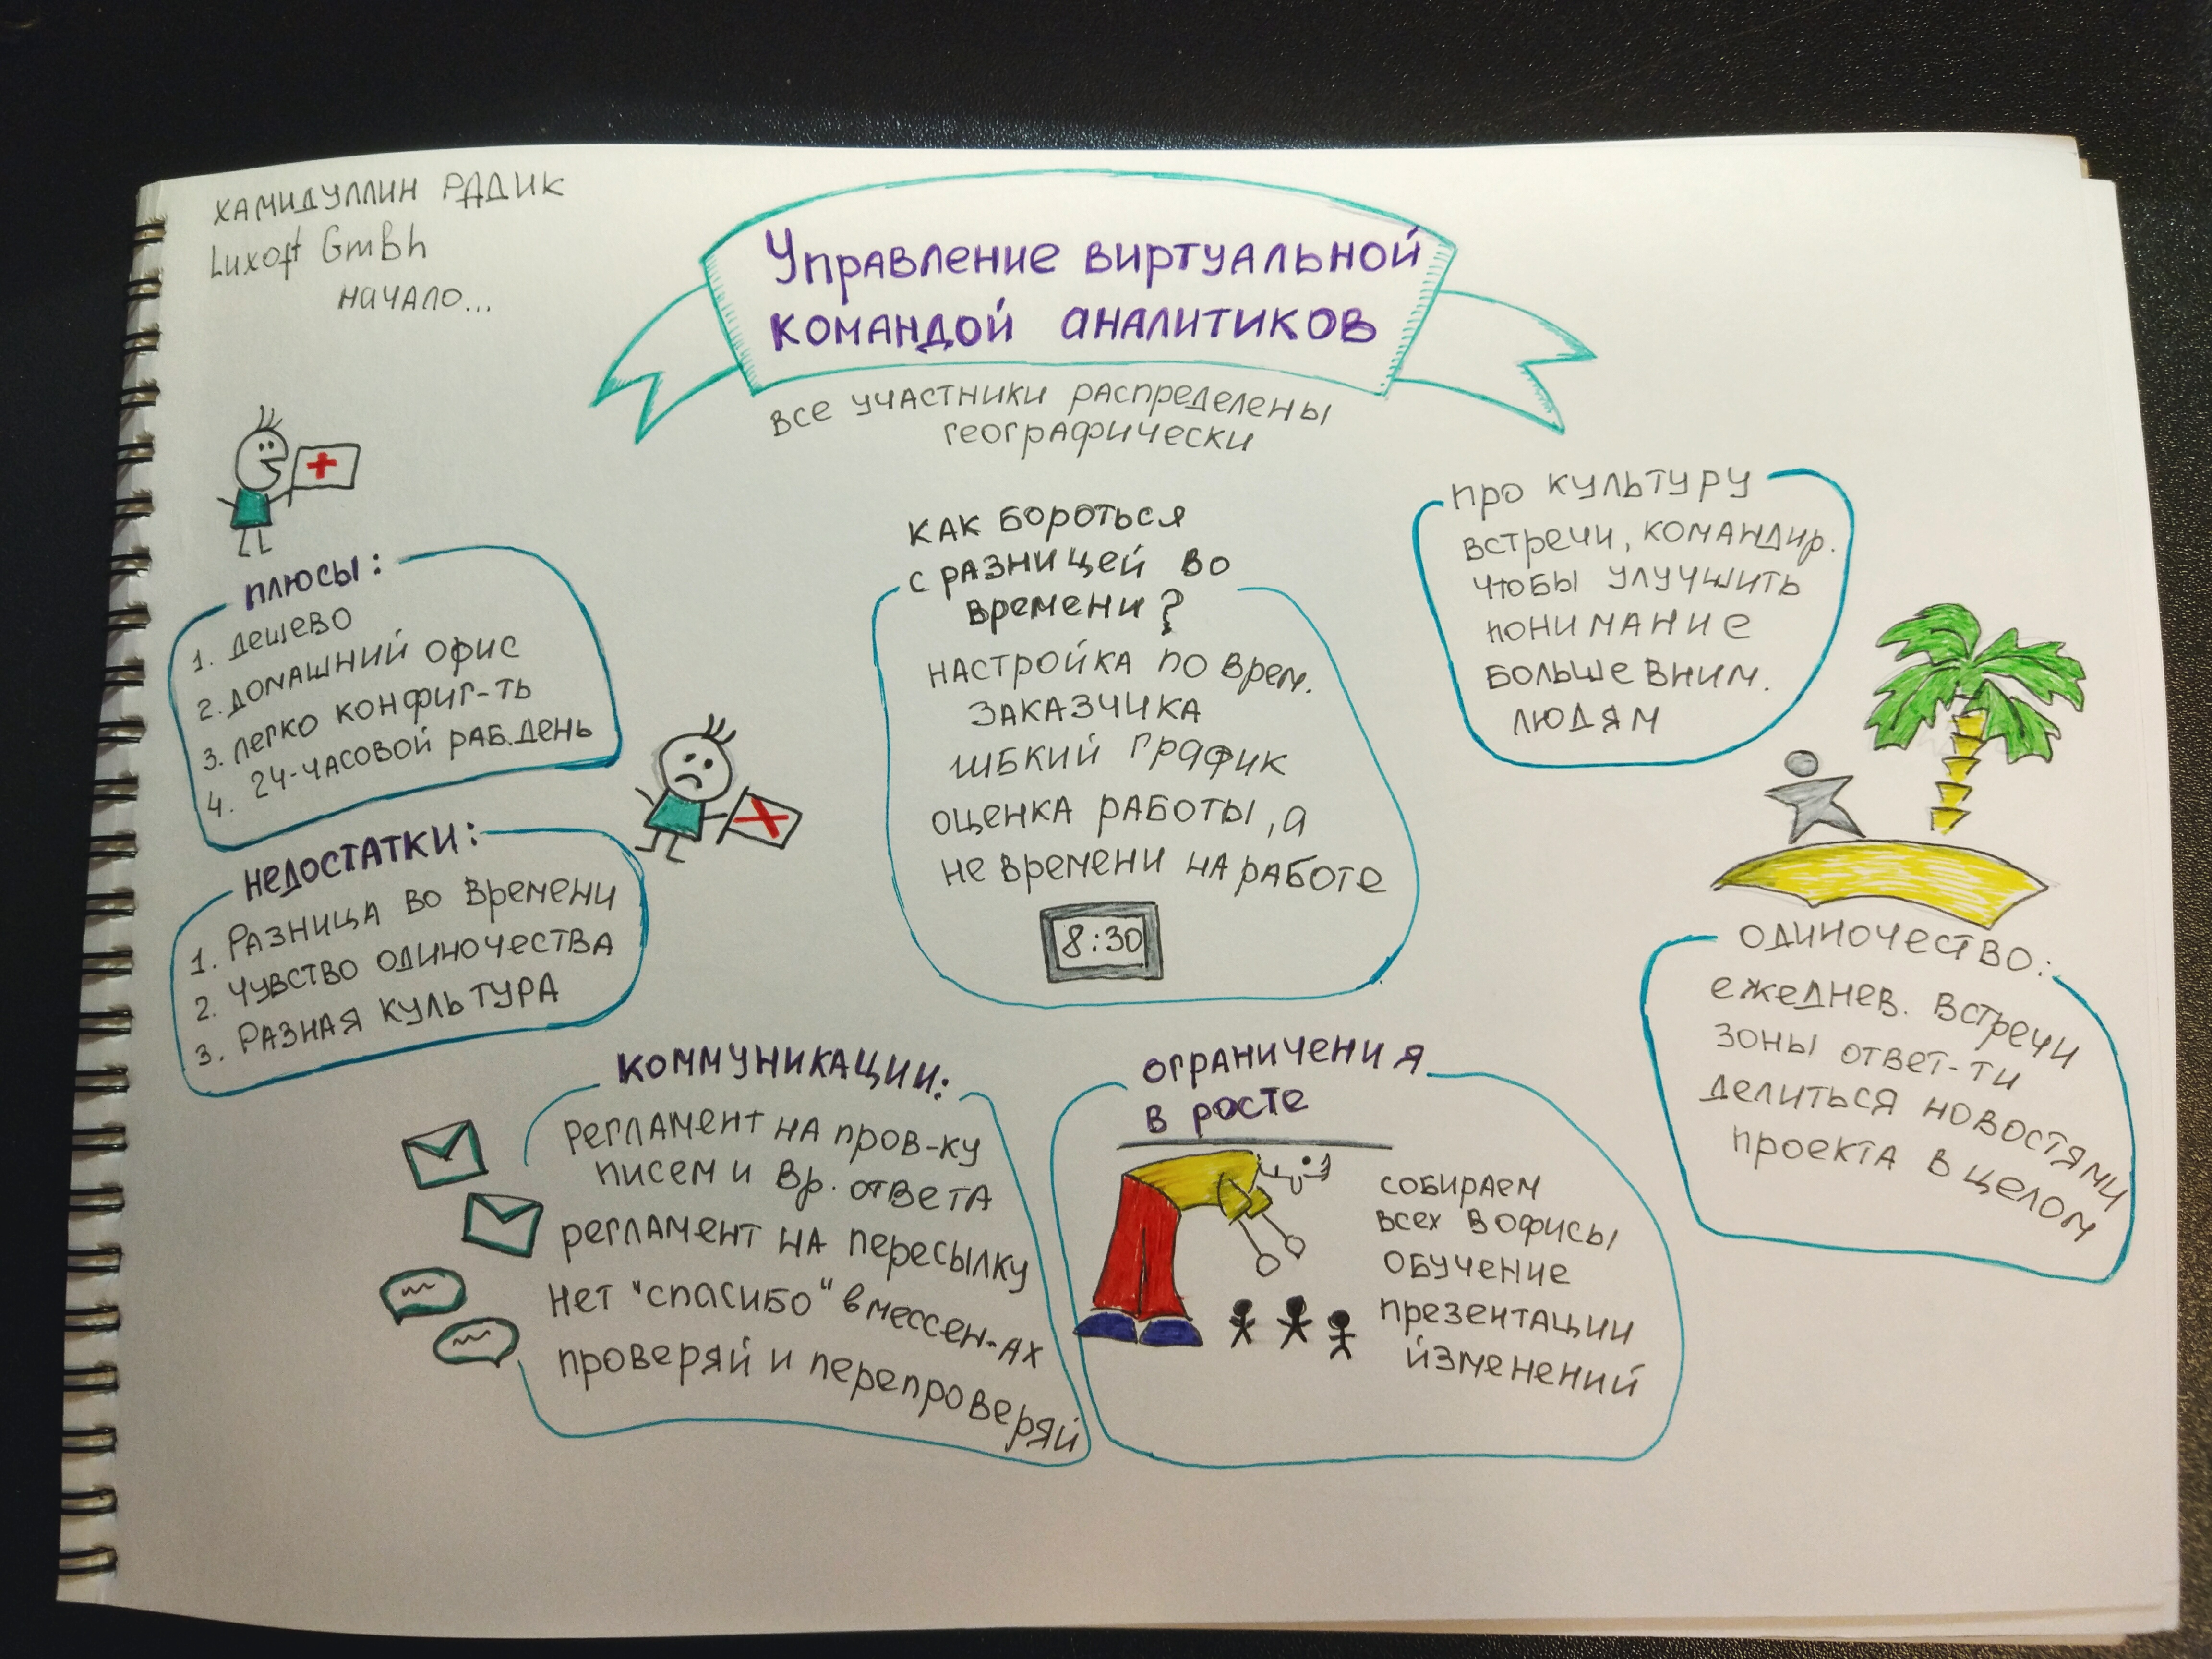 ХАМИДУЛЛИН РАДИК
Luxoft GmBh
начало...
Управление виртуальной
командой аналитиков
все участники распределены
географически
плюсы:
1. дешево
2. домашний офис
3. легко конфиг-ть
4. 24-часовой раб.день
недостатки:
1. Разница во времени
2. чувство одиночества
3. разная культура
как бороться
с разницей во
времени?
настройка по врем.
заказчика
гибкий график
оценка работы, а
не времени на работе
8:30
про культуру
встречи, командир.
чтобы улучшить
понимание
больше вним.
людям
одиночество:
ежеднев. встречи
зоны ответ-ти
делиться новостями
проекта в целом
коммуникации:
регламент на пров-ку
писем и вр. ответа
регламент на пересылку
нет "спасибо" в мессен-ах
проверяй и перепроверяй
ограничения
в росте
собираем
всех в офисы
обучение
презентации
йзменений